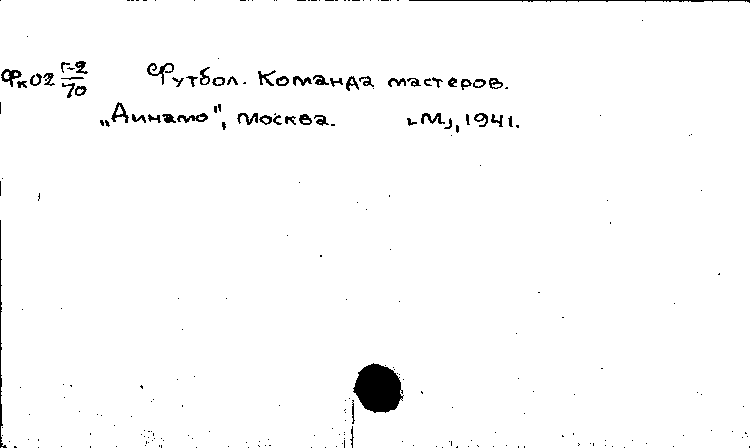 Фк02 Г-2/70 Футбол. Команда мастеров.
„Динамо", Москва. [М], 1941.